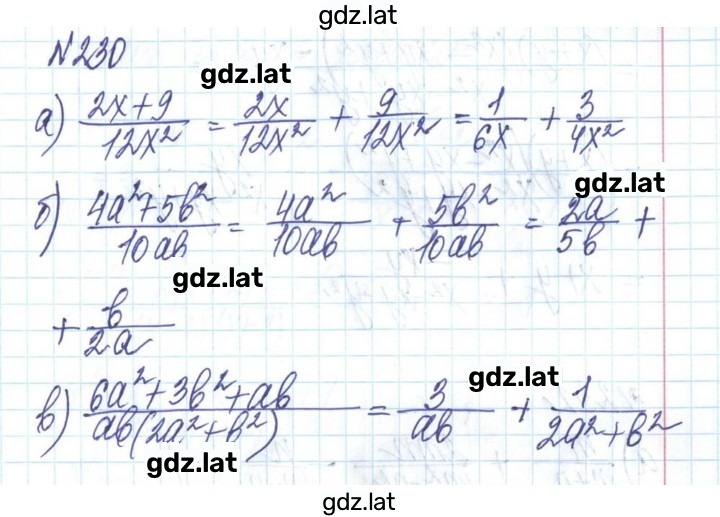 gdz.lat
№230
gdz.lat
а) (2x+9)/(12x²) = 2x/(12x²) + 9/(12x²) = 1/(6x) + 3/(4x²)
gdz.lat
б) (4a²+5b²)/(10ab) = 4a²/(10ab) + 5b²/(10ab) = 2a/(5b) +
gdz.lat
+ b/(2a)
gdz.lat
в) (6a²+3b²+ab)/(ab(2a²+b²)) = 3/(ab) + 1/(2a²+b²)
gdz.lat
gdz.lat